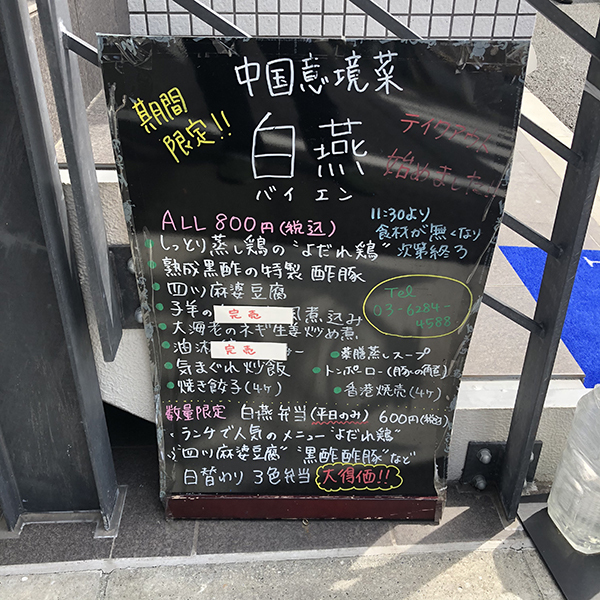 中国意境菜
期間
限定!!
白燕
バイエン
テイクアウト
始めました。
ALL 800円(税込)
11:30より
食材が無くなり
次第終了
・しっとり蒸し鶏の"よだれ鶏"
・熟成黒酢の特製 酢豚
・四川麻婆豆腐
Tel
03-6284-
4588
・子羊の 完売 煮込み
・大海老のネギ生姜炒め煮
・油淋 完売
・薬膳蒸しスープ
・気まぐれ炒飯
・トンポーロー(豚の角煮)
・焼き餃子(4ヶ)
・香港焼売(4ヶ)
数量限定 白燕弁当(平日のみ) 600円(税込)
ランチで人気のメニュー"よだれ鶏"
"四川麻婆豆腐" "黒酢酢豚"など
日替わり 3色弁当 大得価!!